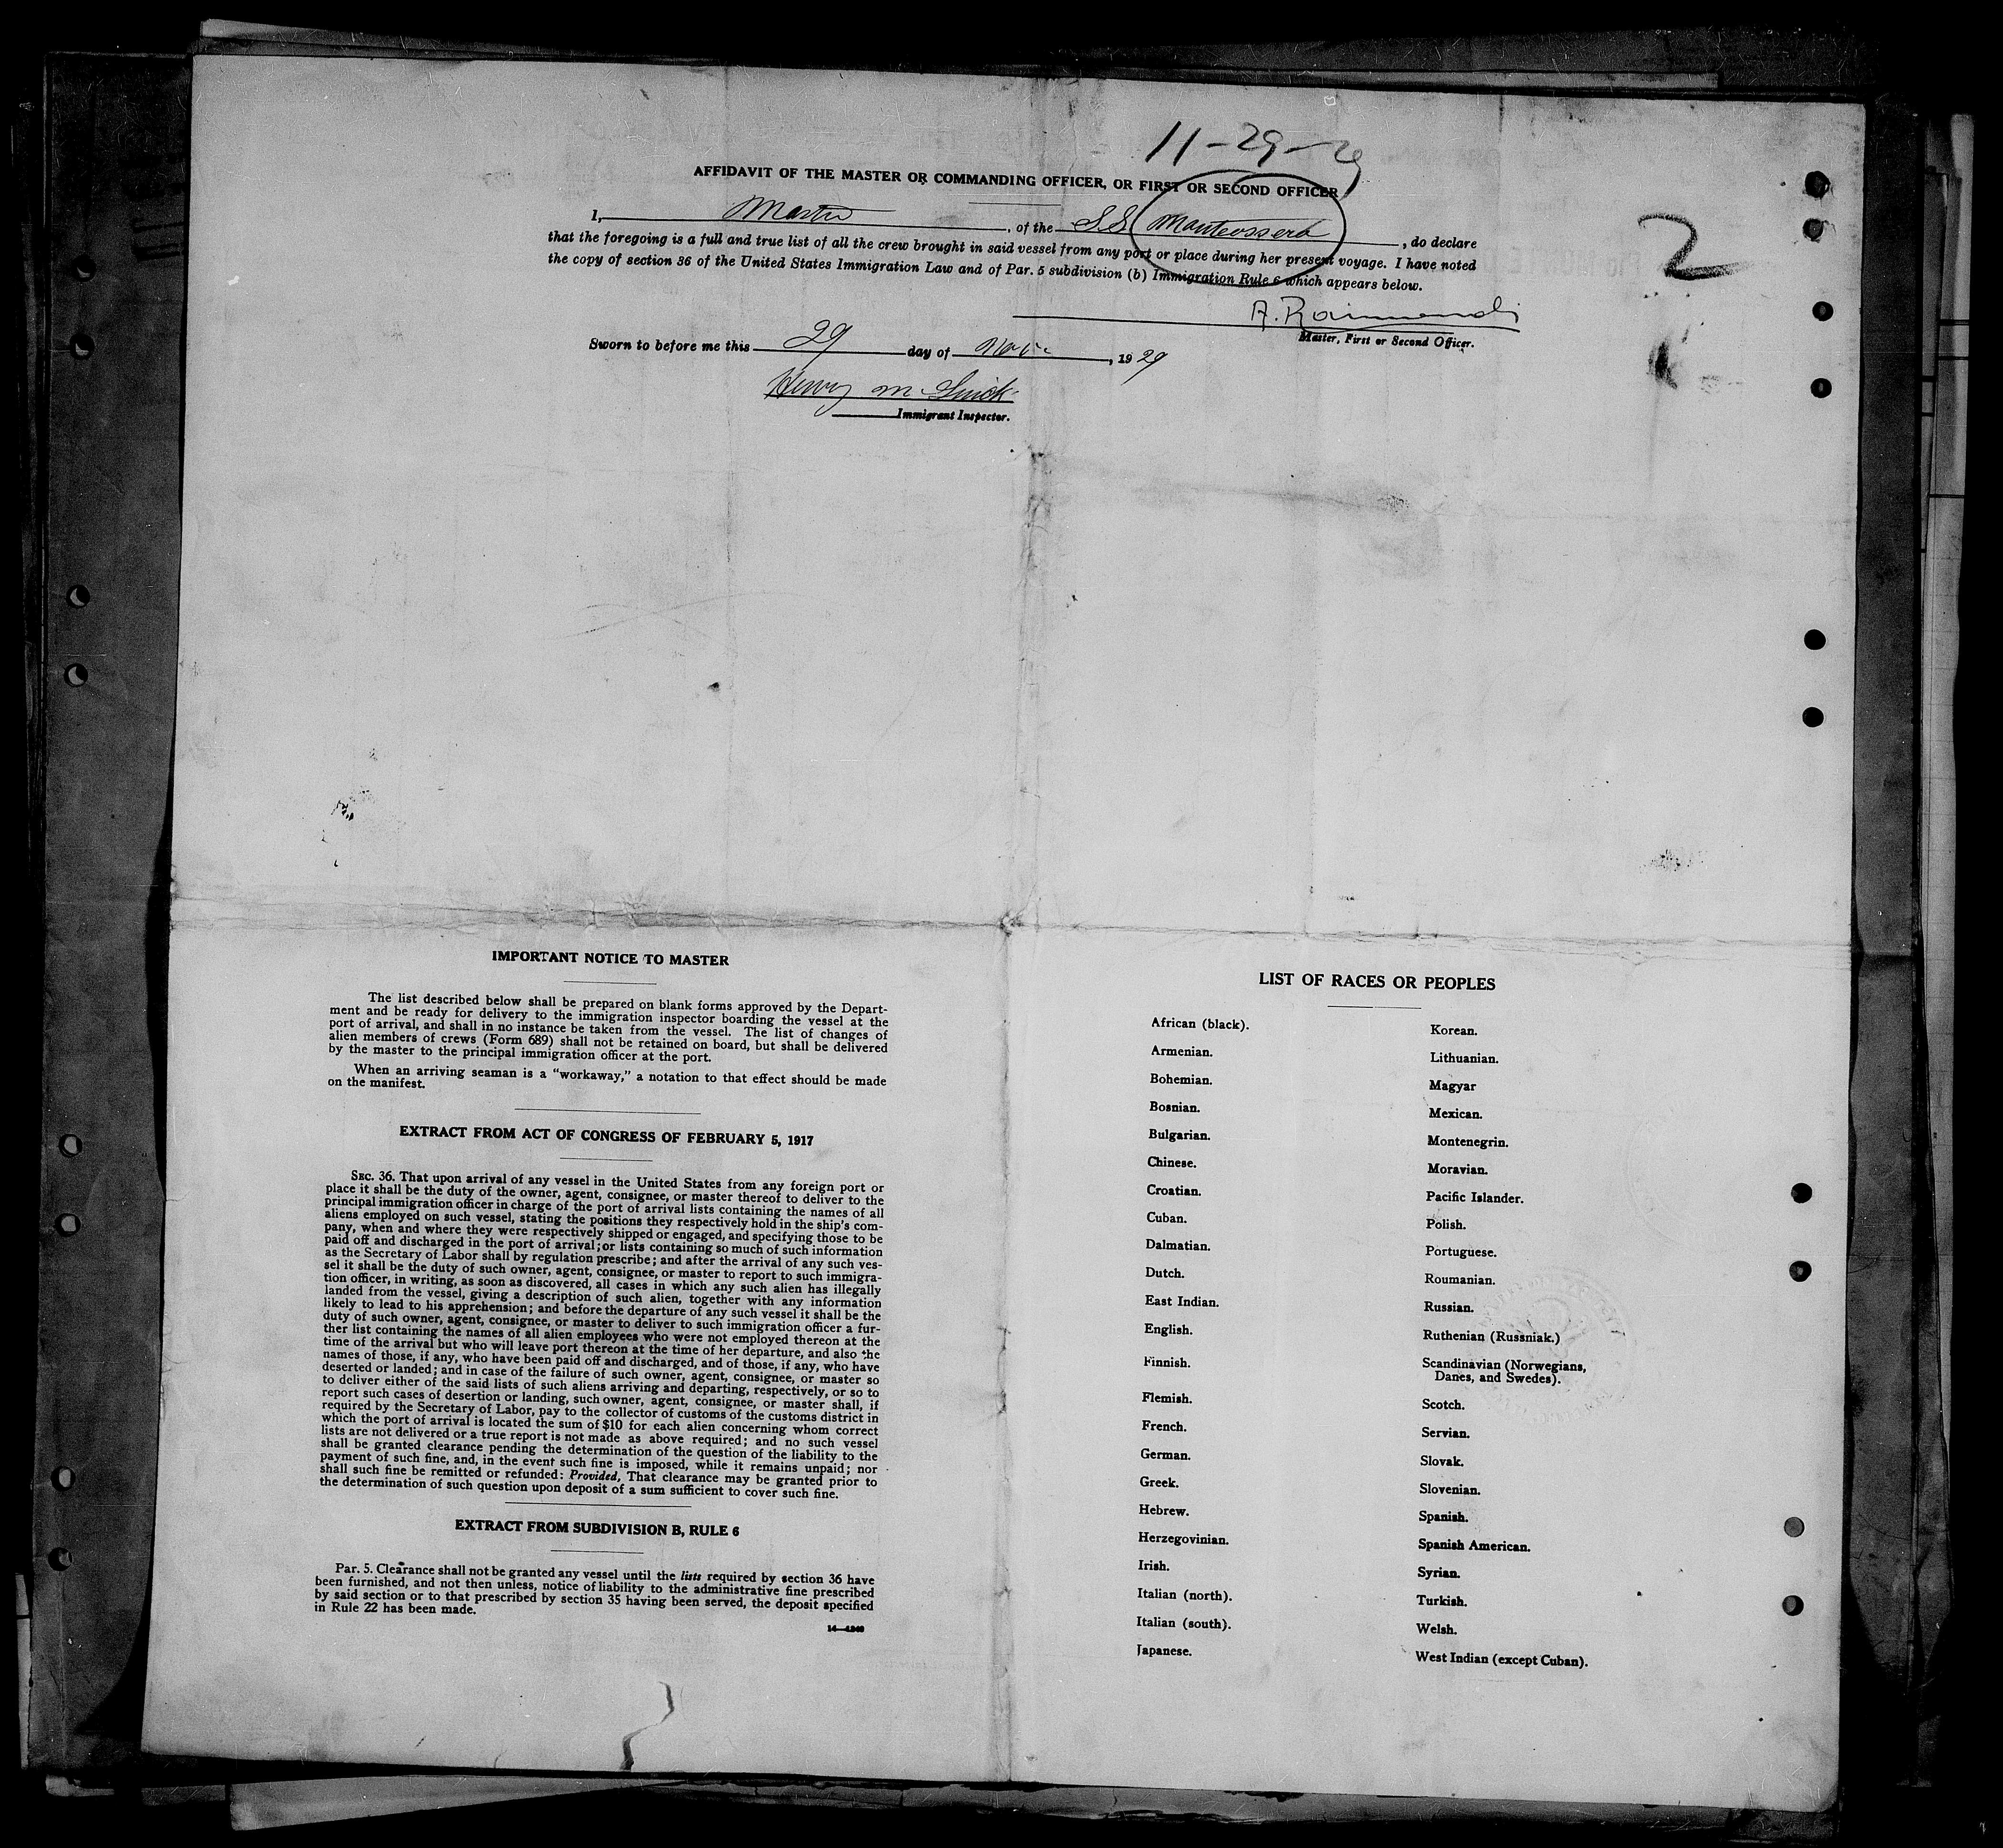 11-29-29
AFFIDAVIT OF THE MASTER OR COMMANDING OFFICER, OR FIRST OR SECOND OFFICER
I, Master, of the S.S. , do declare
that the foregoing is a full and true list of all the crew brought in said vessel from any port or place during her present voyage. I have noted
the copy of section 36 of the United States Immigration Law and of Par. 5 subdivision (b) Immigration Rule 6 which appears below.
2
A. Raimondi
Master, First or Second Officer.
Sworn to before me this 29 day of Nov, 1929
Henry M
Immigrant Inspector.
IMPORTANT NOTICE TO MASTER
The list described below shall be prepared on blank forms approved by the Depart-
ment and be ready for delivery to the immigration inspector boarding the vessel at the
port of arrival, and shall in no instance be taken from the vessel. The list of changes of
alien members of crews (Form 689) shall not be retained on board, but shall be delivered
by the master to the principal immigration officer at the port.
When an arriving seaman is a "workaway," a notation to that effect should be made
on the manifest.
EXTRACT FROM ACT OF CONGRESS OF FEBRUARY 5, 1917
SEC. 36. That upon arrival of any vessel in the United States from any foreign port or
place it shall be the duty of the owner, agent, consignee, or master thereof to deliver to the
principal immigration officer in charge of the port of arrival lists containing the names of all
aliens employed on such vessel, stating the positions they respectively hold in the ship's com-
pany, when and where they were respectively shipped or engaged, and specifying those to be
paid off and discharged in the port of arrival; or lists containing so much of such information
as the Secretary of Labor shall by regulation prescribe; and after the arrival of any such ves-
sel it shall be the duty of such owner, agent, consignee, or master to report to such immigra-
tion officer, in writing, as soon as discovered, all cases in which any such alien has illegally
landed from the vessel, giving a description of such alien, together with any information
likely to lead to his apprehension; and before the departure of any such vessel it shall be the
duty of such owner, agent, consignee, or master to deliver to such immigration officer a fur-
ther list containing the names of all alien employees who were not employed thereon at the
time of the arrival but who will leave port thereon at the time of her departure, and also the
names of those, if any, who have been paid off and discharged, and of those, if any, who have
deserted or landed; and in case of the failure of such owner, agent, consignee, or master so
to deliver either of the said lists of such aliens arriving and departing, respectively, or so to
report such cases of desertion or landing, such owner, agent, consignee, or master shall, if
required by the Secretary of Labor, pay to the collector of customs of the customs district in
which the port of arrival is located the sum of $10 for each alien concerning whom correct
lists are not delivered or a true report is not made as above required; and no such vessel
shall be granted clearance pending the determination of the question of the liability to the
payment of such fine, and, in the event such fine is imposed, while it remains unpaid; nor
shall such fine be remitted or refunded: Provided, That clearance may be granted prior to
the determination of such question upon deposit of a sum sufficient to cover such fine.
EXTRACT FROM SUBDIVISION B, RULE 6
Par. 5. Clearance shall not be granted any vessel until the lists required by section 36 have
been furnished, and not then unless, notice of liability to the administrative fine prescribed
by said section or to that prescribed by section 35 having been served, the deposit specified
in Rule 22 has been made.
LIST OF RACES OR PEOPLES
African (black).
Armenian.
Bohemian.
Bosnian.
Bulgarian.
Chinese.
Croatian.
Cuban.
Dalmatian.
Dutch.
East Indian.
English.
Finnish.
Flemish.
French.
German.
Greek.
Hebrew.
Herzegovinian.
Irish.
Italian (north).
Italian (south).
Japanese.
Korean.
Lithuanian.
Magyar
Mexican.
Montenegrin.
Moravian.
Pacific Islander.
Polish.
Portuguese.
Roumanian.
Russian.
Ruthenian (Russniak.)
Scandinavian (Norwegians,
Danes, and Swedes).
Scotch.
Servian.
Slovak.
Slovenian.
Spanish.
Spanish American.
Syrian.
Turkish.
Welsh.
West Indian (except Cuban).